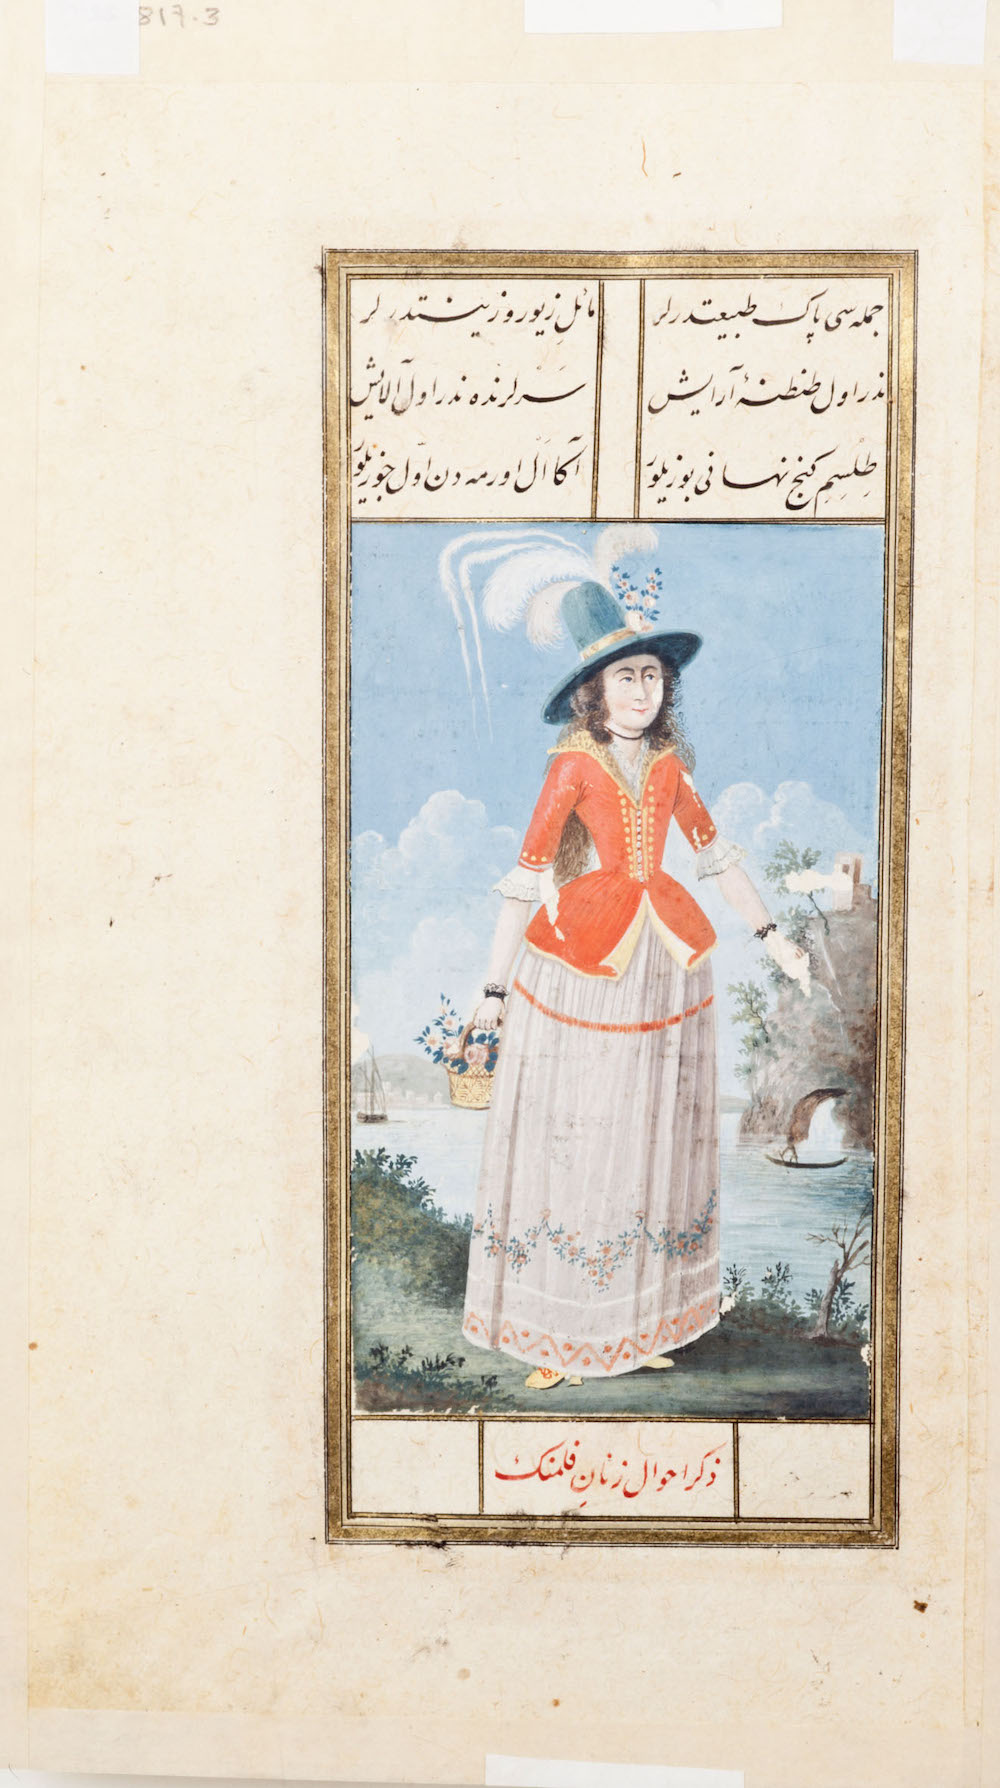 817.3
جمله‌سی پاک طبیعتدرلر مائلِ زیور و زینتدرلر
ندر اول طنطنهٔ آرایش سَرلرنده ندر اول آلایش
طِلْسِمِ کنج نهانی بوزیلور آکا اَل اورمه‌دن اول جوزیلور
ذکر احوال زنانِ فلمنک